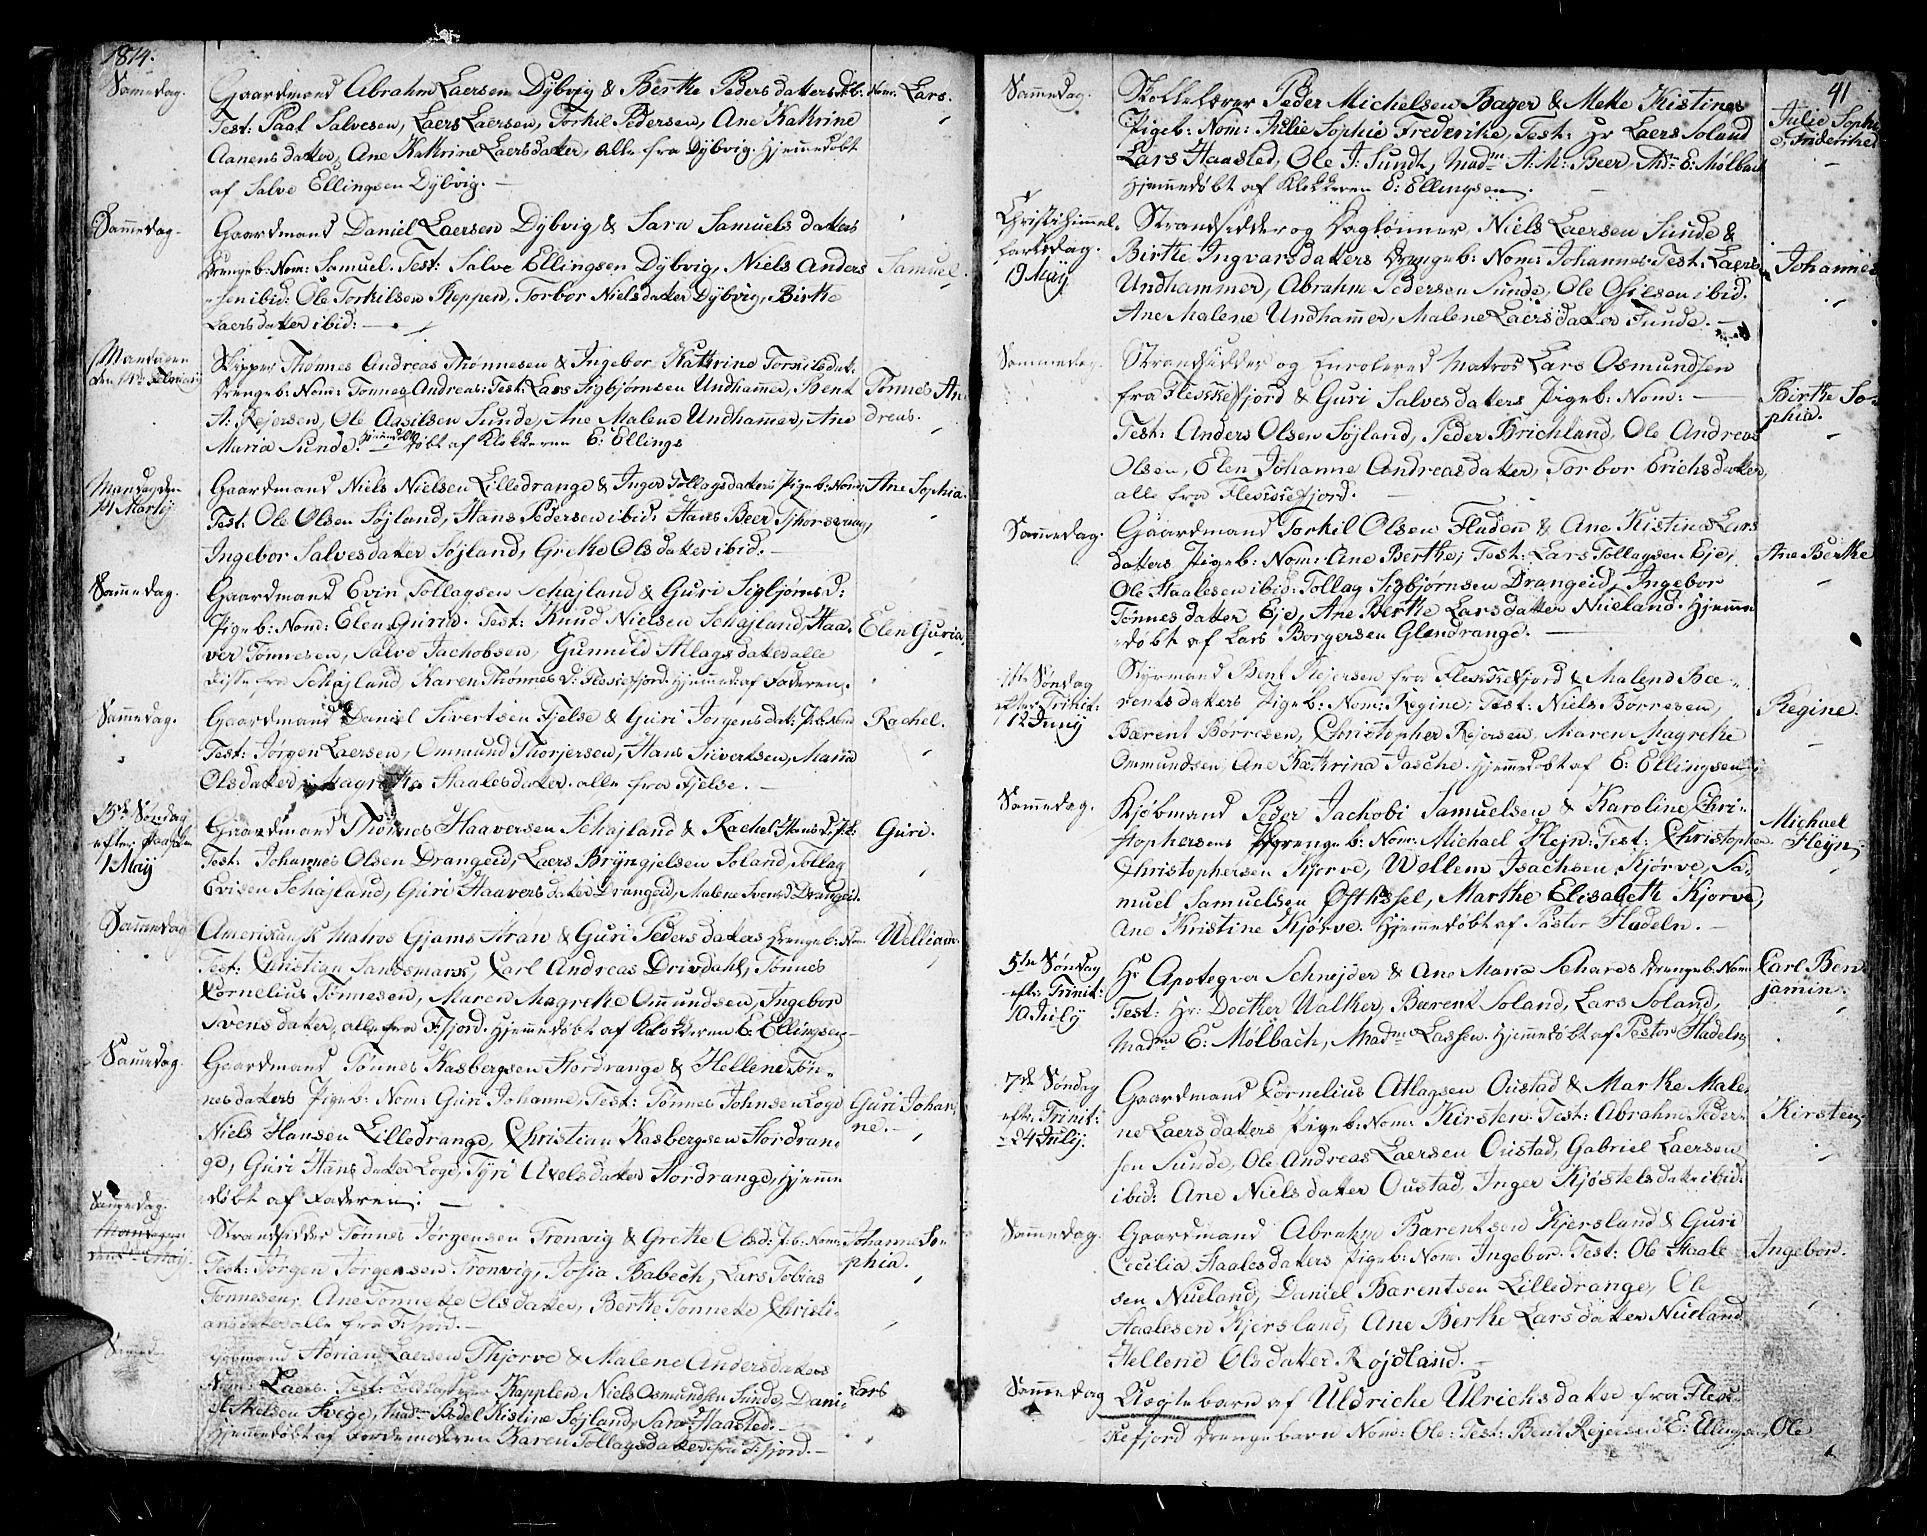 1814.
Samedag. Gaardmand Abrahm Laersen Dÿbvig & Birthe Peders daters Db: Nom: Lars.
Test: Paal Salvesen, Laers Laersen, Torkil Pedersen, Ane Kathrine
Aanensdatter, Ane Kathrine Laersdatter, alle fra Dÿbvig. Hjemmedøbt
af Salve Ellingsen Dÿbvig. —
Sammedag. Gaardmand Daniel Laersen Dÿbvig, & Sara Samuels daters
Drengeb: Nom: Samuel. Test: Salve Ellingsen Dÿbvig, Niels Anders Samuel.
sen ibid: Ole Torkilsen Reppen, Torbor Nielsdatter Dÿbvig, Birthe
Laersdatter ibid: —
Mandagen den 14de Februarij Skipper Thønnes Andreas Thønnesen & Ingebor Kathrine Tornilsdat:
Drengeb: Nom: Tønnes Andreas: Test: Lars Sigbjørnsen Undhammer, Bent Tønnes An
A: Rejersen, Ole Aasilsen Sunde, Ane Malene Undhammer, Ane dreas.
Maria Sunde. døbt af Klokkeren E: Ellings
Mandag den 14 Martij Gaardmand Niels Nielsen Lilledrange & Inger Tollagsdaters Pigeb: Nom: Ane Sophia.
Test: Ole Olsen Søjland, Hans Pedersen ibid: Hans Beer Tjhorsvaag,
Ingebor Salvesdatter Søjland, Grethe Olsdatter ibid. —
Sammedag. Gaardmand Evin Tollagsen Schajland & Guri Sigbjørnsd:
Pigeb: Nom: Elen Guria. Test: Knud Nielsen Schajland, Haa- Elen Guria,
ver Tønnesen, Salve Jachobsen, Gunnild Atlagsdater alle
disse fra Schajland, Karen Thønnes d: Fleskefjord. Hjemmed. af Faderen.
Sammedag. Gaardmand Daniel Sivertsen Fjelse & Guri Jorgensdat: P:b: Nom Rachel.
Test: Jørgen Laersen, Ommund Thorjersen, Hans Sivertsen, Maria
Olsdatter, Magrethe Haalesdatter. alle fra Fjelse. —
3de Søndag efter Paaske 1 Maij Gaardmand Thønnes Haaversen Schajland & Rachel Hans d: P:b: Guri.
Test: Johannes Olsen Drangeid, Laers Brÿngjelsen Soland, Tollag
Evisen Schajland, Guri Haavers datter Drangeid, Malene Svensd Drangeid.
Sammedag Amerikansk Matros Gjams Aran & Guri Peders daters Drengeb: Nom. William.
Test: Christian Sandsmark, Carl Andreas Drivdahl, Tønnes
Cornelius Tønnesen, Maren Magrethe Ommundsen, Ingebor
Svensdatter, alle fra F:fjord. Hjemmedøbt af Klokkeren E: Ellingsen
Samedag. Gaardmand Tønnes Kasbergsen Hordrange & Hellene Tøn-
nesdaters Pigeb: Nom: Guri Johanne, Test: Tønnes Johnsen Loge Guri Johan
Niels Hansen Lilledrange, Christian Kasbergsen Hordran- ne.
ge, Guri Hans datter Loge, Tÿri Axelsdatter Hordrange, Hjemme
døbt af Faderen: —
Samedag. Strandsidder Tønnes Jørgensen Tronvig & Grethe Olsd: P:b: Nom: Johanna So-
Test: Jørgen Jørgensen Tronvig, Josia Babech, Lars Tobias phia.
Tønnesen, Ane Tønneke Olsdatter, Berthe Tonneke Christi-
ansdater alle fra F:fjord. —
Samed. Gaardmand Adrian Laersen Thjorve & Malene Andersdaters
Nom: Laers. Test: Kapplen, Niels Osmundsen Sunde, Dani- Lars
el Axelsen Svege, Mad: Bodel Kistine Søjland, Sara Haasted: —
Hjemmedøbt af Jordemoderen Karen Tollagsdatter fra F:fjord. —
41
Sammedag. Skollelærer Peder Michelsen Bager & Mette Kistines
Pigeb: Nom: Julie Sophie Frederike, Test: Hr Laers Soland Julie Sophi
Lars Haasted, Ole J: Sundt, Madm A: M: Beer, Mdm E: Mølbach e, Friderike
Hjemmedøbt af Klokkeren E: Ellingsen. —
Christi Himmelfartsdag. 19 Maij Strandsidder og Daglønner Niels Laersen Sunde &
Birthe Ingvarsdaters Drengeb: Nom: Johannes Test: Laers Johannes
Undhammer, Abrahm Pedersen Sunde, Ole Osilsen ibid.
Ane Malene Undhammer, Malene Laersdatter Sunde. —
Sammedag. Strandsidder og Enrolered Matros Lars Osmundsen
fra Flekkefjord & Guri Salvesdaters Pigeb: Nom: — Birthe So-
Test: Anders Olsen Søjland, Peder Brichland, Ole Andreas phia.
Olsen, Elen Johanne Andreasdatter, Torbor Erichsdatter,
alle fra Flekkefjord. —
Sammedag. Gaardmand Torkil Olsen Fluden & Ane Kistines Lars
daters Pigeb: Nom: Ane Berthe; Test: Lars Tollagsen Eje, Ane Berthe
Ole Haalesen ibid: Tollag Sigbjørnsen Drangeid, Ingebor
Tønnesdatter Eje, Ane Berthe Larsdatter Nueland. Hjemme
døbt af Lars Borgersen Glendrange. —
1ste Søndag efter Trinit: 12 Junij Styrmand Bent Rejersen fra Flekkefjord & Malene Bæ-
rentsdaters Pigeb: Nom: Regine; Test: Niels Børresen, Regine.
Bærent Børresen, Christopher Rejersen, Maren Magrethe
Ommundsen, Ane Kathrina Jasche. Hjemmedøbt af E: Ellingsen
Sammedag. Kjøbmand Peder Jachobi Samuelsen & Karoline Chri-
stophersens Drengeb: Nom: Michael Hejn: Test: Christopher Michael
Christophersen Kjørve, Wollem Isachsen Kjørve, Sa- Heÿn,
muel Samuelsen Østhassel, Marthe Elisabeth Kjorve,
Ane Kristine Kjørve. Hjemmedøbt af Pastor Hadeln. —
5te Søndag eft: Trinit: 10 Julÿ Hr Apoteqver Schnejder & Ane Maria Schares Drengeb: Nom: Carl Ben
Test: Hr: Docter Walker, Bærent Soland, Lars Soland, jamin.
Madme E: Mølbach, Madme Lassen. Hjemmedøbt af Pastor Hadeln,
7de Søndag eft: Trinit: 24 Julÿ. Gaardmand Cornelius Atlagsen Oustad & Marthe Male-
ne Laersdaters Pigeb: Nom: Kirsten. Test: Abrahm Peder- Kirsten,
sen Sunde, Ole Andreas Laersen Oustad, Gabriel Laersen
ibid: Ane Nielsdatter Oustad, Inger Kjøstelsdatter ibid:
Sammedag. Gaardmand Abrahm Barentsen Kjersland & Guri
Cecilia Haalesdaters Pigeb: Nom: Ingebor. Test: Ole Haale- Ingebor.
sen Nueland, Daniel Barentsen Lilledrange, Ole
Haalesen Kjersland, Ane Birthe Larsdatter Nueland
Hellene Olsdatter Røjdland. —
Sammedag Uægte barn af Uldriche Ulrichsdater fra Flek-
kefjord Drengebarn Nom: Ole: Test: Bent Rejersen, E: Elingsen, Ole